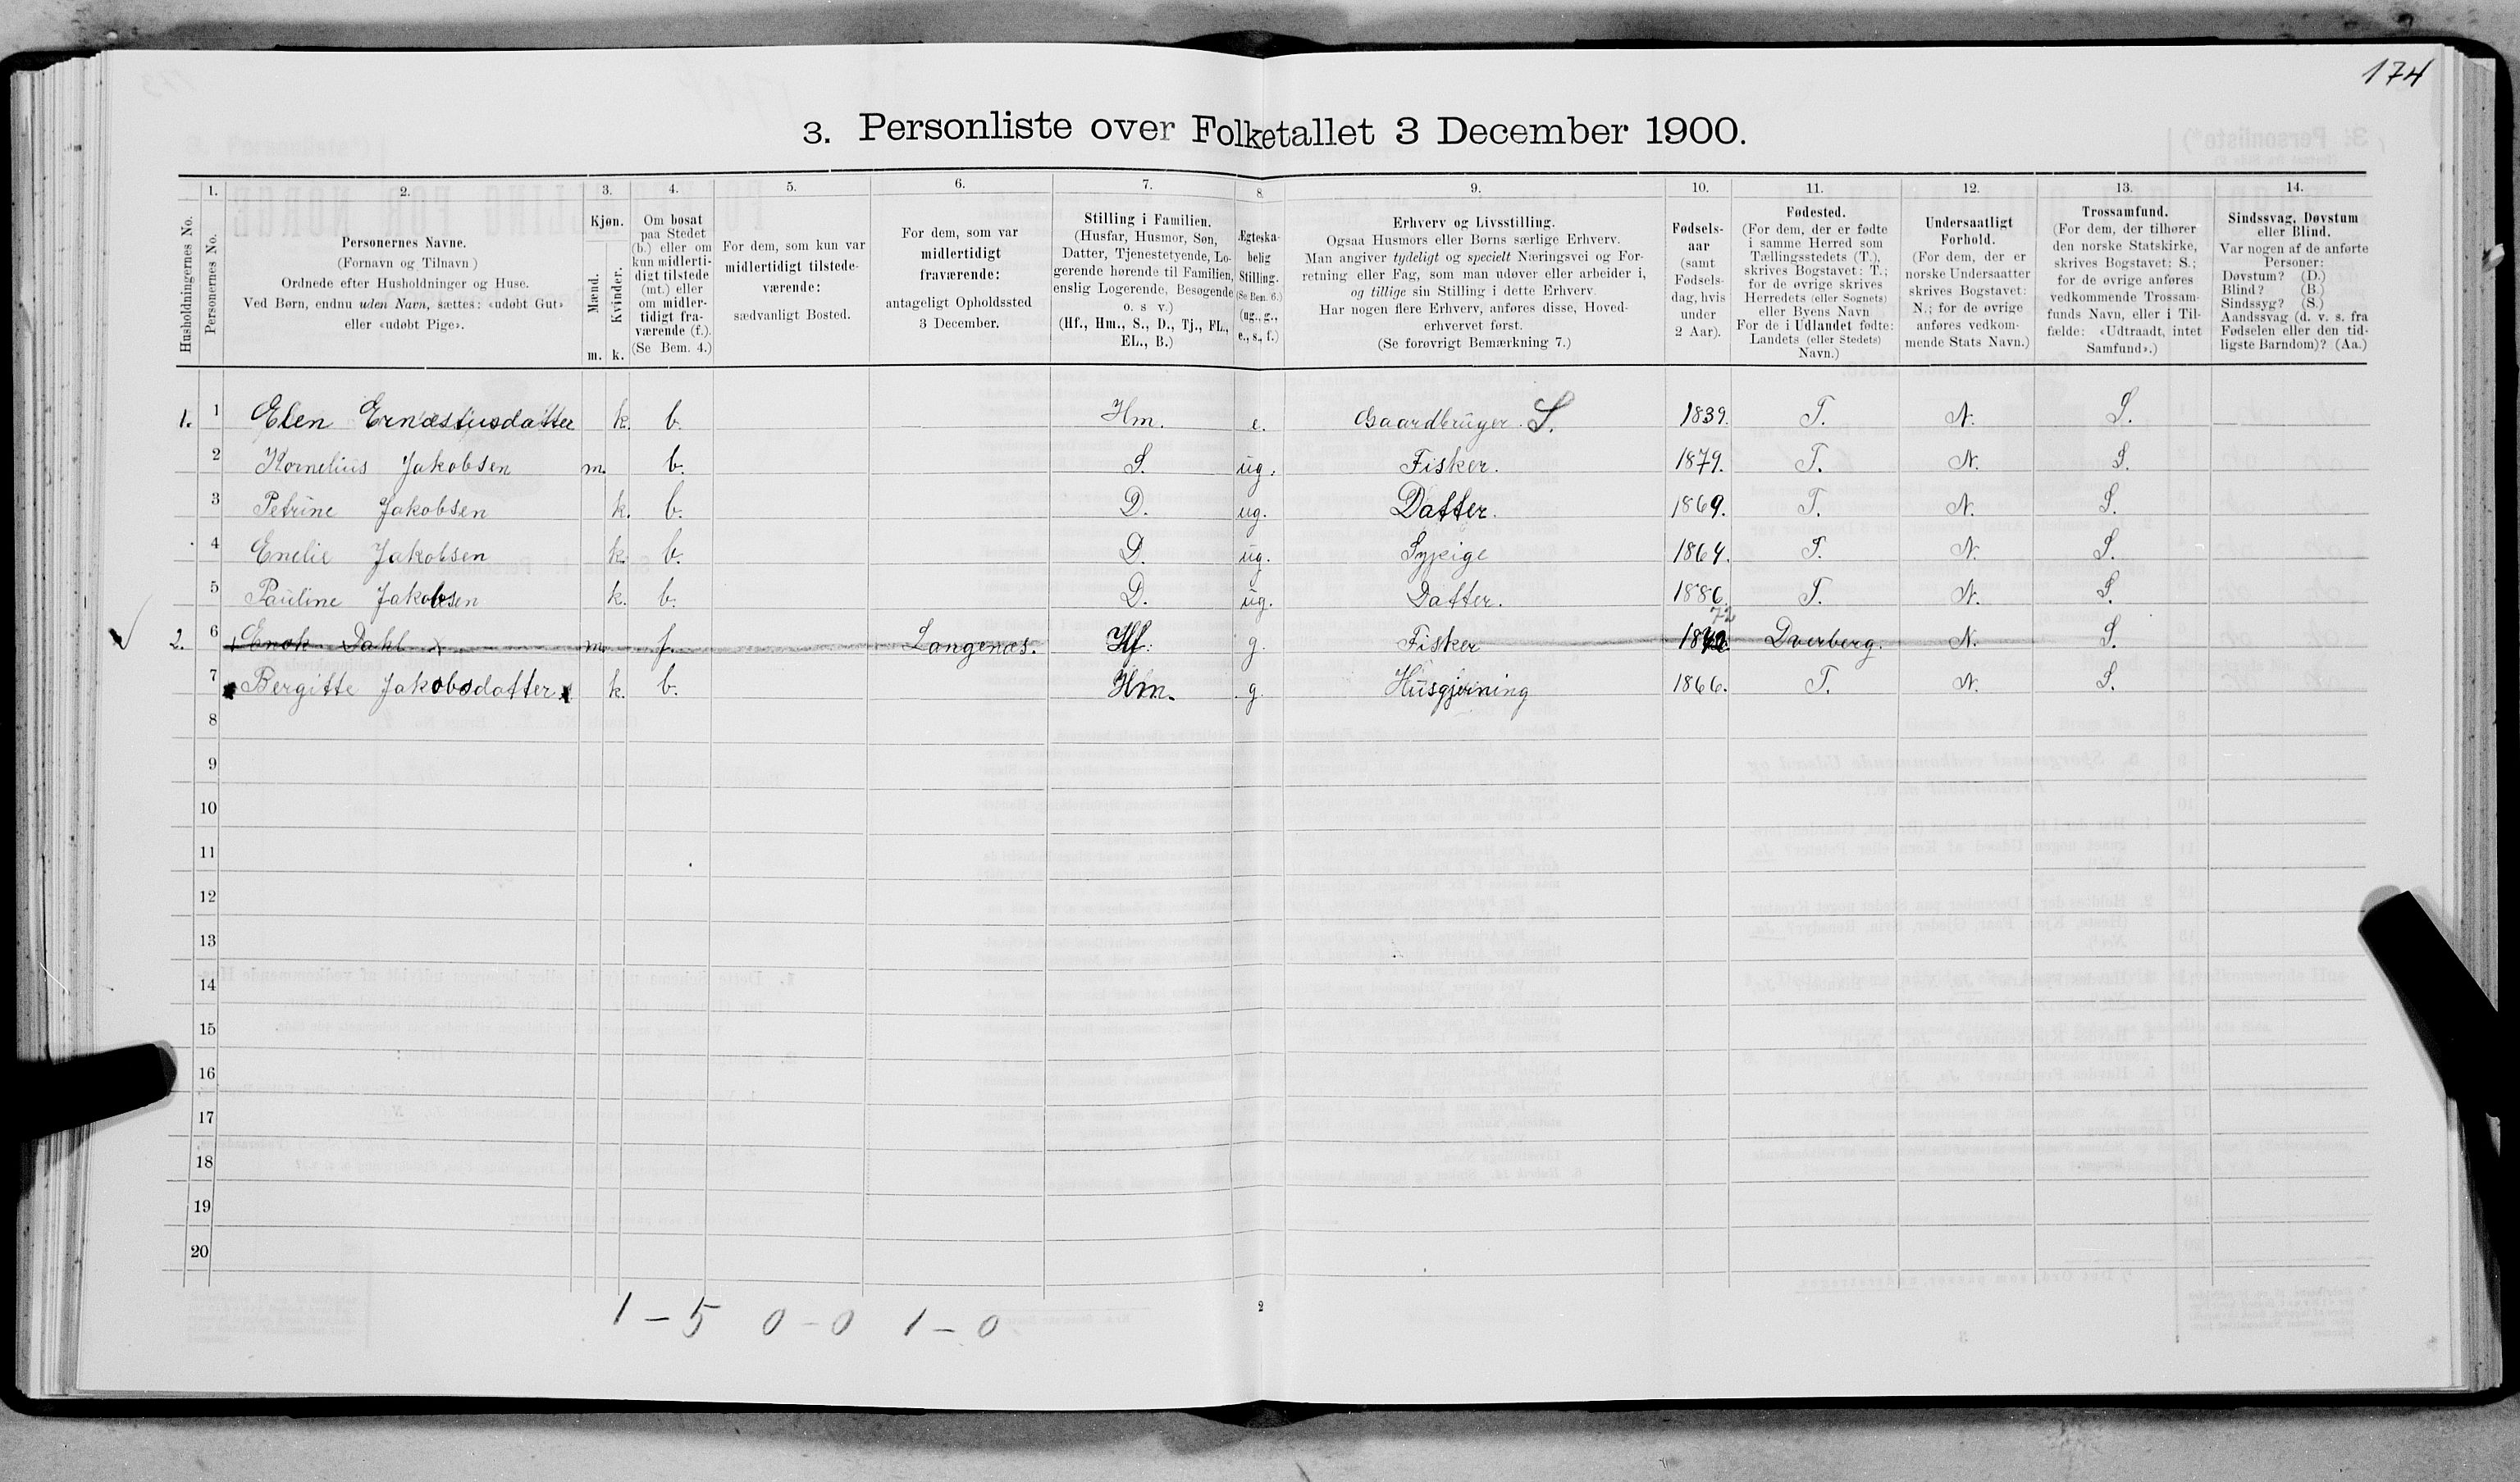 174
3. Personliste over Folketallet 3 December 1900.
1. 2. 3. 4. 5. 6. 7. 8. 9. 10. 11. 12. 13. 14.
Husholdningernes No.
Personernes No.
Personernes Navne.
(Fornavn og Tilnavn)
Ordnede efter Husholdninger og Huse.
Ved Børn, endnu uden Navn, sættes: «udøbt Gut»
eller «udøbt Pige».
Kjøn.
Mænd.
Kvinder.
m. k.
Om bosat
paa Stedet
(b.) eller om
kun midlerti-
digt tilstede
(mt.) eller
om midler-
tidigt fra-
værende (f.).
(Se Bem. 4.)
For dem, som kun var
midlertidigt tilstede-
værende:
sædvanligt Bosted.
For dem, som var
midlertidigt
fraværende:
antageligt Opholdssted
3 December.
Stilling i Familien.
(Husfar, Husmor, Søn,
Datter, Tjenestetyende, Lo-
gerende hørende til Familien,
enslig Logerende, Besøgende
o. s v.)
(Hf., Hm., S., D., Tj., FL.,
EL., B.)
Ægteska-
belig
Stilling.
(Se Bem. 6.)
(ug., g.,
e., s., f.)
Erhverv og Livsstilling.
Ogsaa Husmors eller Børns særlige Erhverv.
Man angiver tydeligt og specielt Næringsvei og For-
retning eller Fag, som man udøver eller arbeider i,
og tillige sin Stilling i dette Erhverv.
Har nogen flere Erhverv, anføres disse, Hoved-
erhvervet først.
(Se forøvrigt Bemærkning 7.)
Fødsels-
aar
(samt
Fødsels-
dag, hvis
under
2 Aar).
Fødested.
(For dem, der er fødte
i samme Herred som
Tællingsstedets (T.),
skrives Bogstavet: T.;
for de øvrige skrives
Herredets (eller Sognets)
eller Byens Navn
For de i Udlandet fødte:
Landets (eller Stedets)
Navn.)
Undersaatligt
Forhold.
(For dem, der er
norske Undersaatter
skrives Bogstavet:
N.; for de øvrige
anføres vedkom-
mende Stats Navn.)
Trossamfund.
(For dem, der tilhører
den norske Statskirke,
skrives Bogstavet: S.;
for de øvrige anføres
vedkommende Trossam-
funds Navn, eller i Til-
fælde: «Udtraadt, intet
Samfund».)
Sindssvag, Døvstum
eller Blind.
Var nogen af de anførte
Personer:
Døvstum? (D.)
Blind? (B.)
Sindssyg? (S.)
Aandssvag (d. v. s. fra
Fødselen eller den tid-
ligste Barndom)? (Aa.)
1. 1 Elen Ernæstusdatter k. b. Hm. e. Gaardbruger S. 1839. T. N. S.
2 Kornelius Jakobsen m. b. S. ug. Fisker. 1879. T. N. S.
3 Petrine Jakobsen k. b. D. ug. Datter. 1869. T. N. S.
4 Enelie Jakobsen k. b. D. ug. Sypige 1864. T. N. S.
5 Pauline Jakobsen k. b. D. ug. Datter. 1886. T. N. S.
72
2. 6 Enok Dahl x m. f. Langenæs. Hf. g. Fisker Dverberg. N. S.
7 Bergitte Jakobsdatter. x k. b. Hm. g. Husgjerning 1866. T. N. S.
8
9
10
11
12
13
14
15
16
17
18
19
20
1 – 5 0 – 0 1 – 0
2